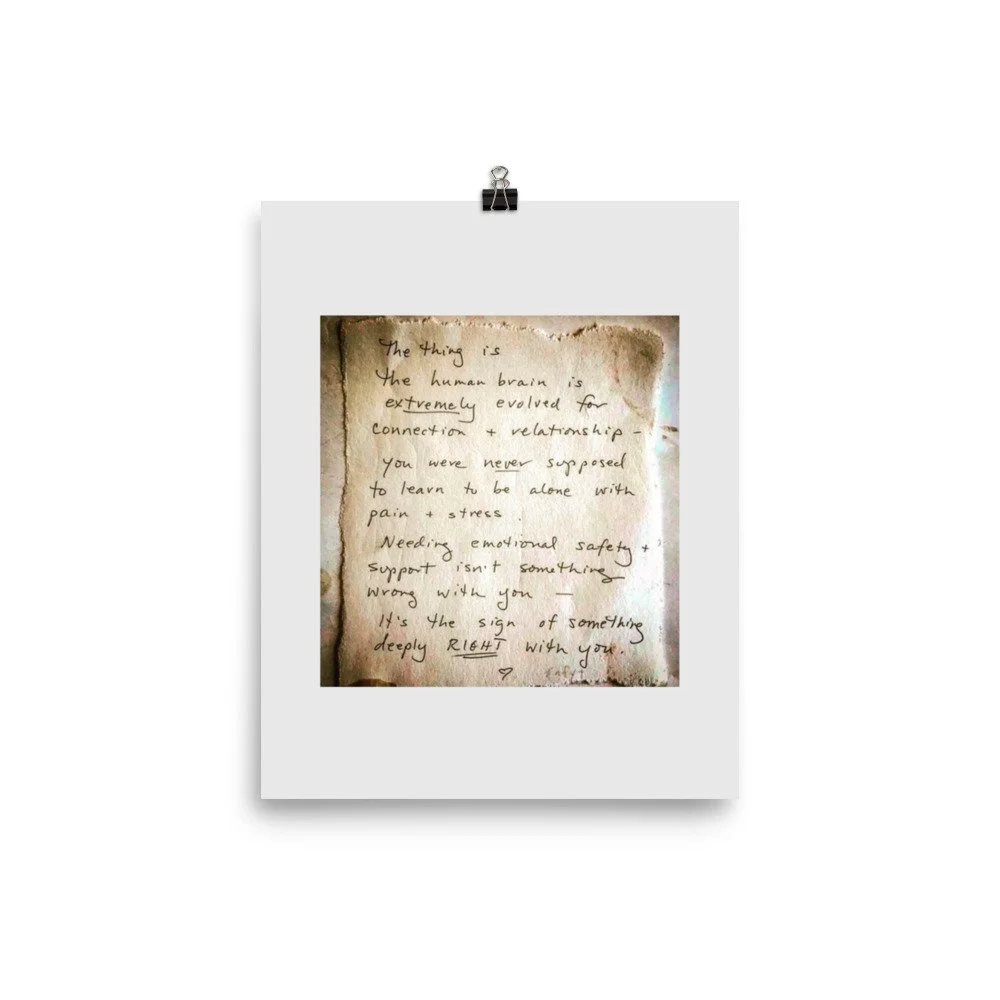 The thing is
the human brain is
extremely evolved for
connection + relationship -
you were never supposed
to learn to be alone with
pain + stress.
Needing emotional safety +
support isn't something
wrong with you —
It's the sign of something
deeply RIGHT with you.